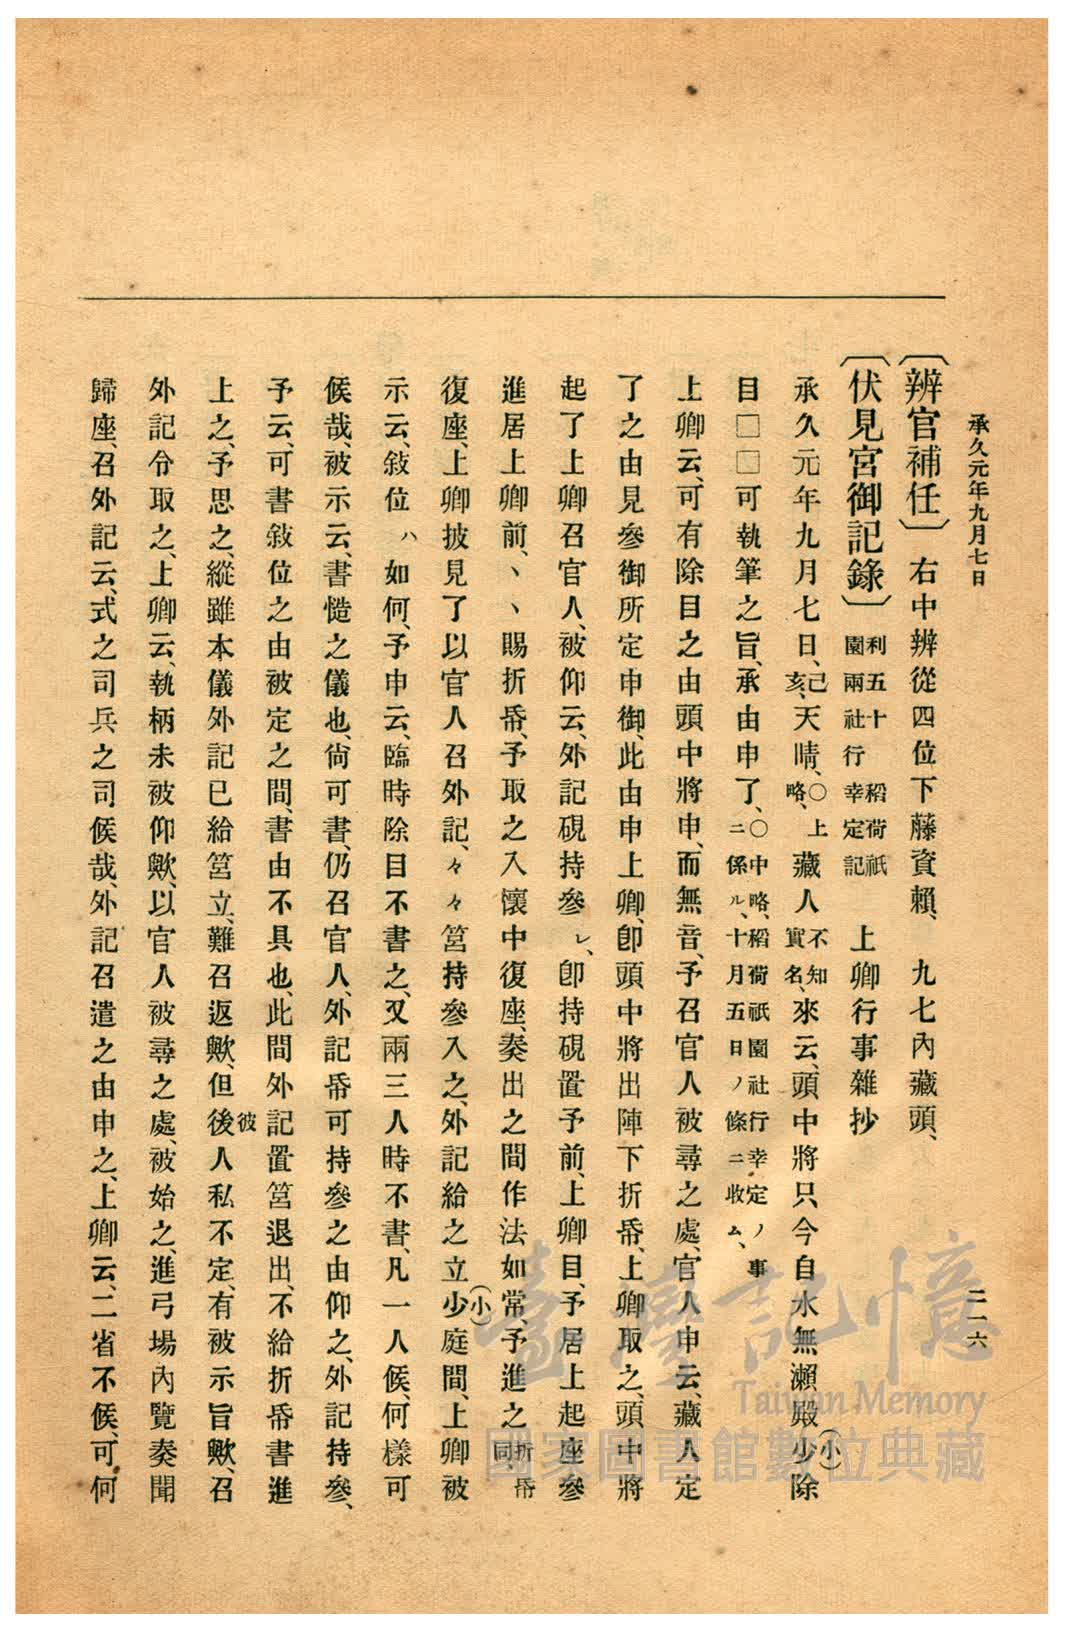 承久元年九月七日
二二六
〔辨官補任〕右中辨從四位下藤資賴、九七內藏頭、
〔伏見宮御記錄〕利五十 稻荷祇園兩社行幸定記 上卿行事雜抄
承久元年九月七日、己亥、天晴、〇上略、藏人不知實名、來云、頭中將只今自水無瀨殿少(小)除
目□□可執筆之旨、承由申了、〇中略、稻荷祇園社行幸定ノ事ニ係ル、十月五日ノ條ニ收ム、
上卿云、可有除目之由頭中將申、而無音、予召官人被尋之處、官人申云、藏人定
了之由見參御所定申御、此由申上卿、卽頭中將出陣下折帋、上卿取之、頭中將
起了上卿召官人、被仰云、外記硯持參レ、卽持硯置予前、上卿目、予居上起座參
進居上卿前、〻〻賜折帋、予取之入懷中復座、奏出之間作法如常、予進之折帋同、
復座、上卿披見了以官人召外記、々々筥持參入之、外記給之立少(小)庭間、上卿被
示云、敍位ハ如何、予申云、臨時除目不書之、又兩三人時不書、凡一人候、何樣可
候哉、被示云、書慥之儀也、尙可書、仍召官人、外記帋可持參之由仰之、外記持參、
予云、可書敍位之由被定之間、書由不具也、此間外記置筥退出、不給折帋書進
上之、予思之、縱雖本儀外記已給筥立、難召返歟、但後彼人私不定、有被示旨歟、召
外記令取之、上卿云、執柄未被仰歟、以官人被尋之處、被始之、進弓場內覽奏聞
歸座、召外記云、式之司兵之司候哉、外記召遣之由申之、上卿云、二省不候、可何
臺灣記憶
Taiwan Memory
國家圖書館數位典藏